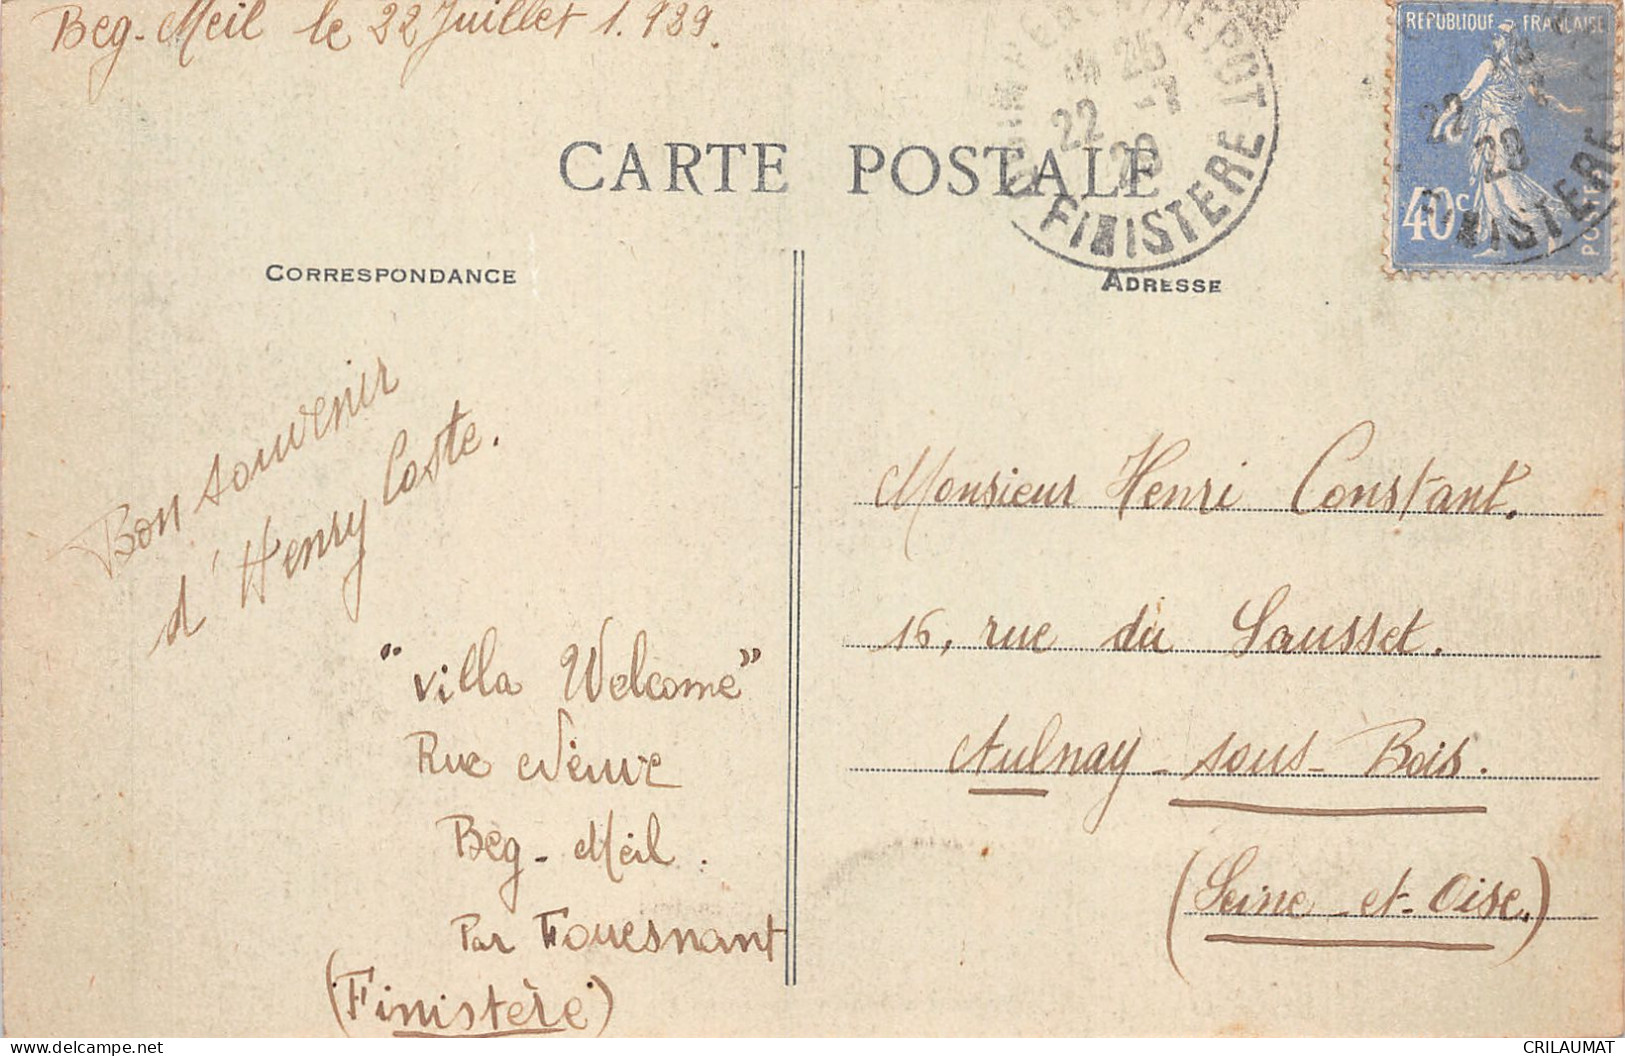 Beg-Meil le 22 Juillet 1.929.
REPUBLIQUE FRANÇAISE
40c
POSTES
22 -7
29
FINISTERE
QUIMPER ENTREPOT
25
22 -7
29
FINISTERE
CARTE POSTALE
CORRESPONDANCE
ADRESSE
Bon souvenir
d'Henry Coste.
"Villa Welcome"
Rue Neuve
Beg-Meil.
Par Fouesnant
(Finistère)
Monsieur Henri Constant.
16, rue du Sausset.
Aulnay-sous-Bois.
(Seine-et-Oise.)
CRILAUMAT